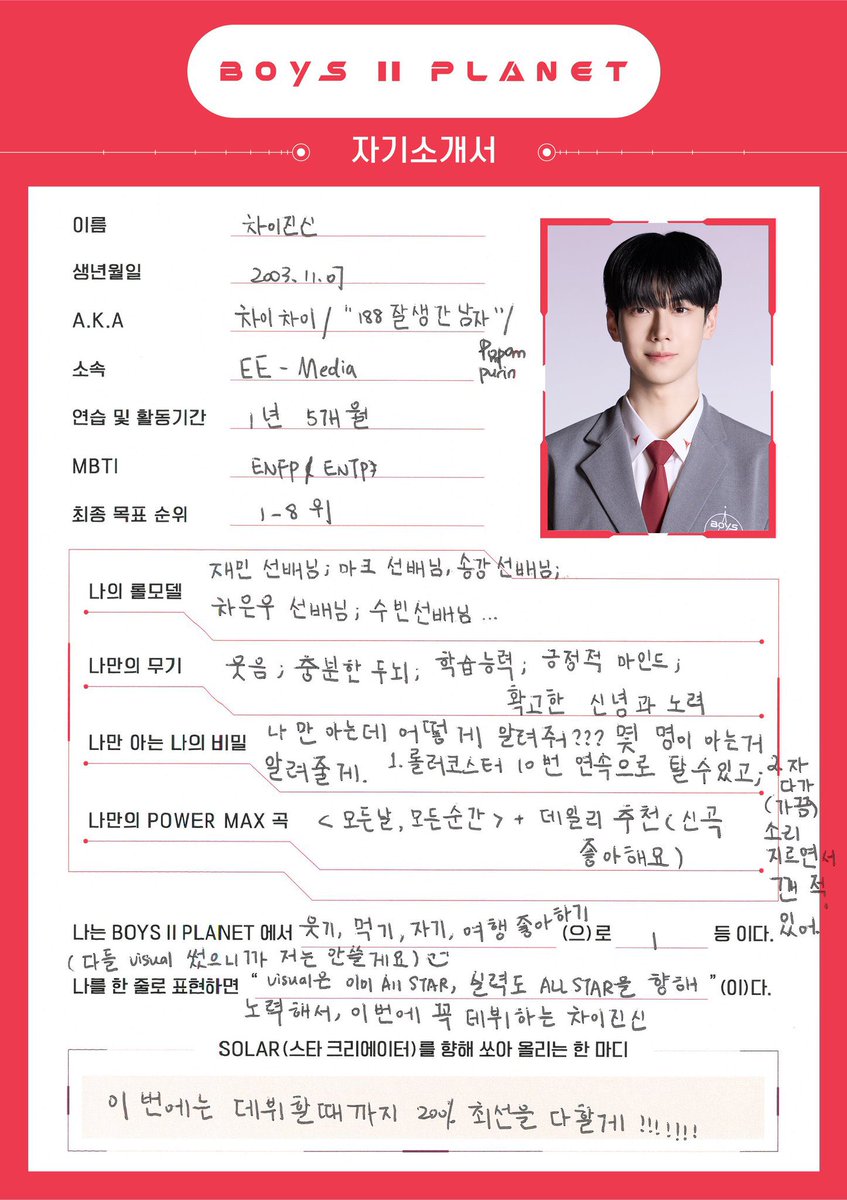 BOYS II PLANET
자기소개서
이름 차이진신
생년월일 2003.11.07
A.K.A 차이차이 / "188 잘생긴 남자" /
Pompom
purin
소속 EE - Media
연습 및 활동기간 1년 5개월
MBTI ENFP / ENTP
최종 목표 순위 1-8위
재민 선배님; 마크 선배님, 송강 선배님;
나의 롤모델
차은우 선배님; 수빈선배님 ...
나만의 무기 웃음; 충분한 두뇌; 학습능력; 긍정적 마인드;
확고한 신념과 노력
나만 아는 나의 비밀 나만 아는데 어떻게 알려줘??? 몇 명이 아는거
알려줄게. 1. 롤러코스터 10번 연속으로 탈수있고;
2. 자
다가
(가끔)
소리
지르면서
깬 적
있어.
나만의 POWER MAX 곡 < 모든날, 모든순간 > + 데일리 추천 (신곡
좋아해요)
나는 BOYS II PLANET 에서 웃기, 먹기, 자기, 여행 좋아하기 (으)로 1 등 이다.
(다들 visual 썼으니까 저는 안쓸게요)
나를 한 줄로 표현하면 " visual은 이미 All STAR, 실력도 ALL STAR을 향해 " (이)다.
노력해서, 이번에 꼭 데뷔하는 차이진신
SOLAR(스타 크리에이터)를 향해 쏘아 올리는 한 마디
이번에는 데뷔할때까지 200% 최선을 다할게 !!!!!!!
BOYS